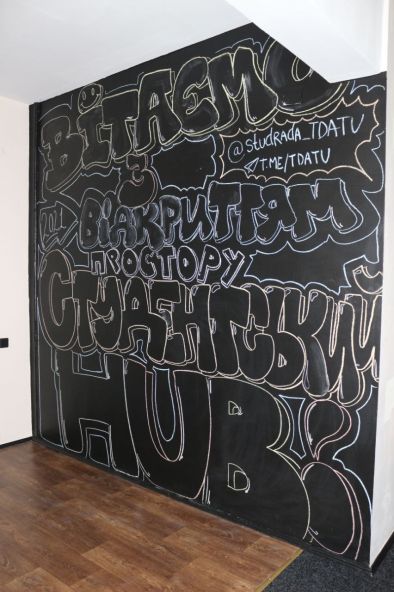 Вітаємо
@studrada_TDATU
T.ME/TDATU
З
Відкриттям
простору
Студентський
HUB!